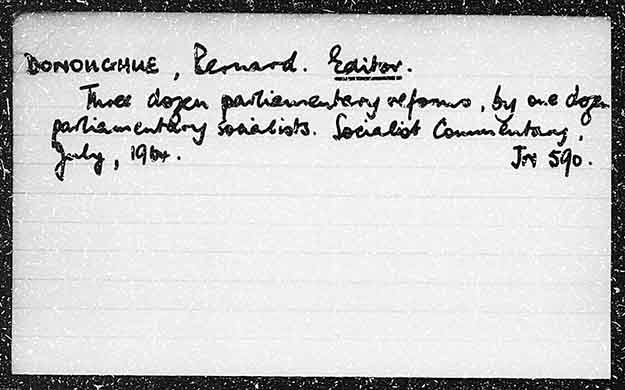 DONOUGHUE, Bernard. Editor.
Three dozen parliamentary reforms, by one dozen
parliamentary socialists. Socialist Commentary,
July, 1964.
JN 590.